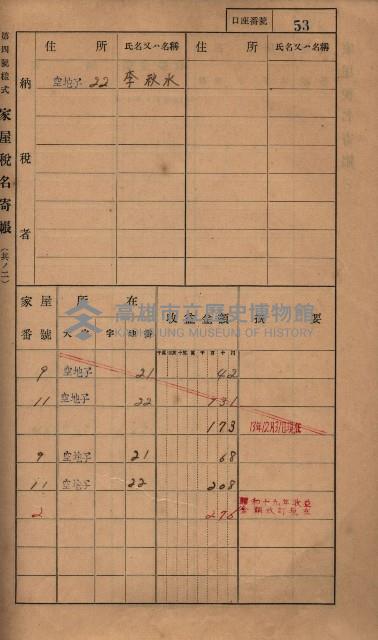 口座番號 53
第四號樣式 家屋稅名寄帳(其ノ二)
納稅者
住所 氏名又ハ名稱 住所 氏名又ハ名稱
空地子 22 李秋水
家屋番號 所在 收益金額 摘要
大字 字 地番
9 空地子 21 42
11 空地子 22 131
173 13年12月31日現在
9 空地子 21 68
11 空地子 22 208
2 276 昭和十九年收益
金額改訂
高雄市立歷史博物館
KAOHSIUNG MUSEUM OF HISTORY